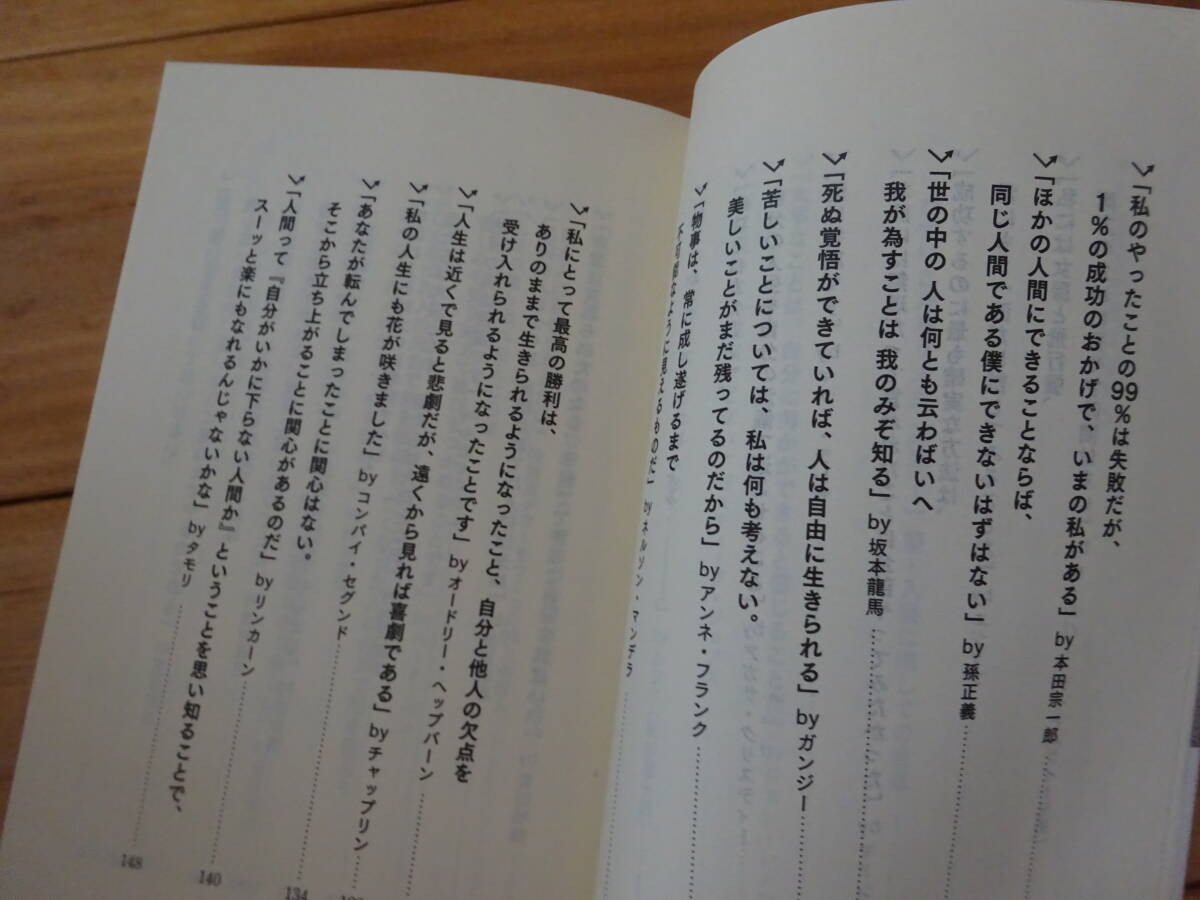 「私のやったことの99%は失敗だが、
1%の成功のおかげで、いまの私がある」by 本田宗一郎
「ほかの人間にできることならば、
同じ人間である僕にできないはずはない」by 孫正義
「世の中の 人は何とも云わばいへ
我が為すことは 我のみぞ知る」by 坂本龍馬
「死ぬ覚悟ができていれば、人は自由に生きられる」by ガンジー
「苦しいことについては、私は何も考えない。
美しいことがまだ残ってるのだから」by アンネ・フランク
「物事は、常に成し遂げるまで
不可能なように見えるものだ」by ネルソン・マンデラ
「私にとって最高の勝利は、
ありのままで生きられるようになったこと、自分と他人の欠点を
受け入れられるようになったことです」by オードリー・ヘップバーン
「人生は近くで見ると悲劇だが、遠くから見れば喜劇である」by チャップリン
「私の人生にも花が咲きました」by コンパイ・セグンド
「あなたが転んでしまったことに関心はない。
そこから立ち上がることに関心があるのだ」by リンカーン
134
「人間って『自分がいかに下らない人間か』ということを思い知ることで、
140
スーッと楽にもなれるんじゃないかな」by タモリ
148